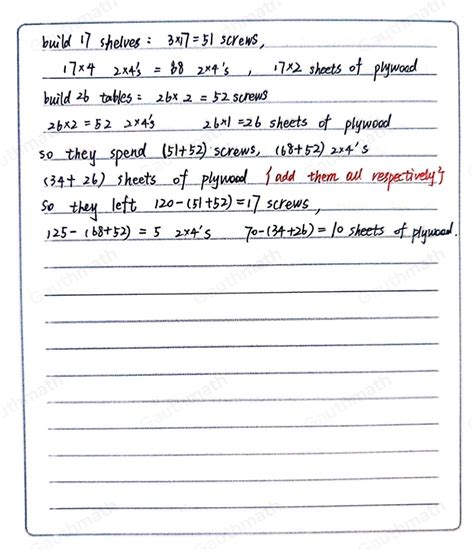 build 17 shelves : 3×17=51 screws,
17×4 2×4's = 68 2×4's , 17×2 sheets of plywood
build 26 tables : 26×2 = 52 screws
26×2 = 52 2×4's 26×1 =26 sheets of plywood
so they spend (51+52) screws, (68+52) 2×4's
(34+26) sheets of plywood {add them all respectively}
so they left 120-(51+52)=17 screws,
125-(68+52) = 5 2×4's 70-(34+26)=10 sheets of plywood.